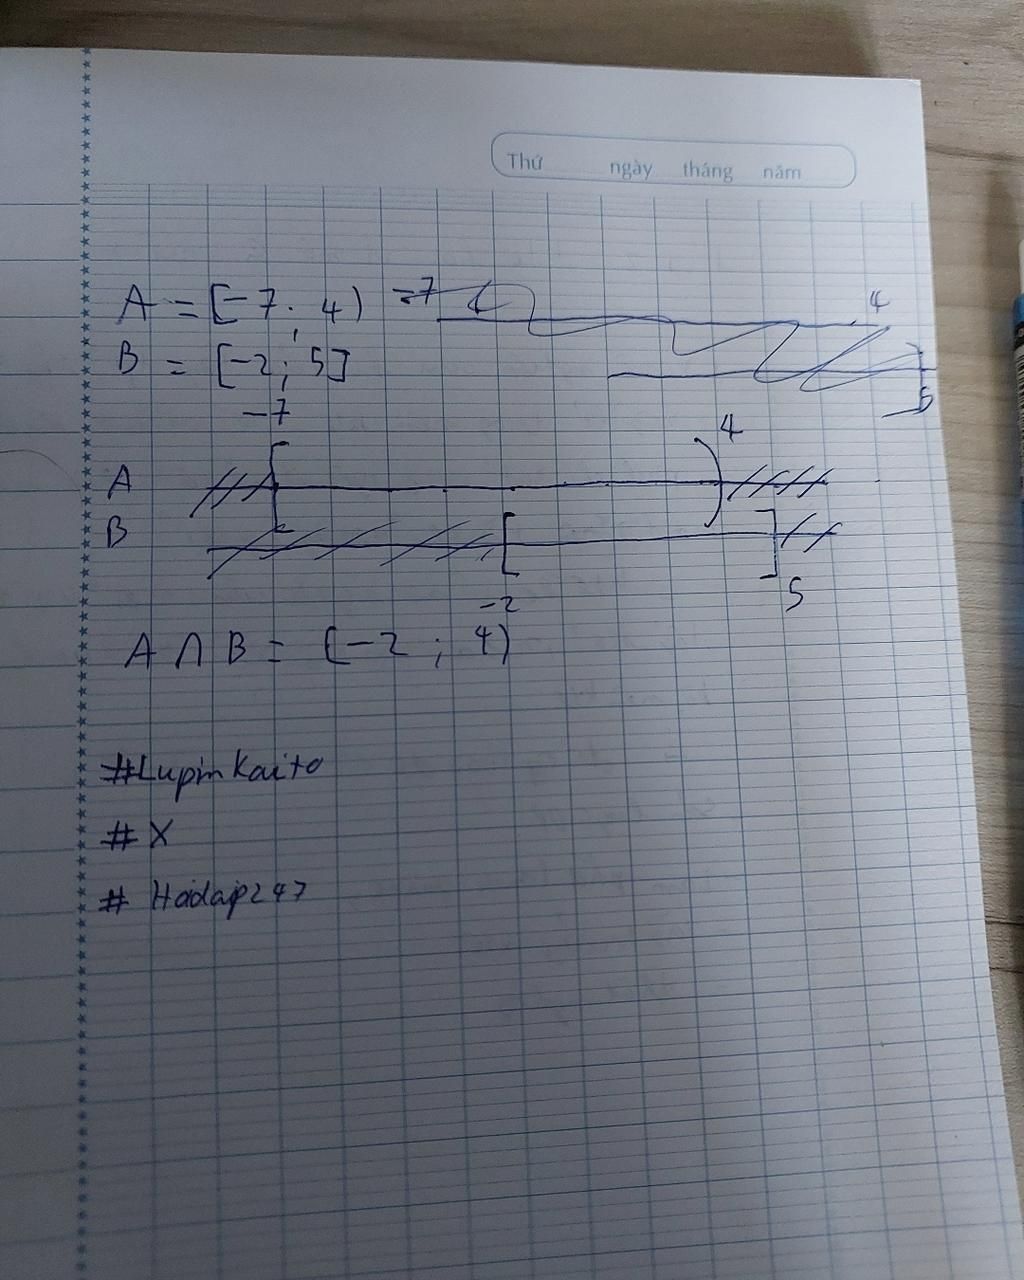 Thứ ngày tháng năm
A = [-7; 4) -7 4
B = [-2; 5] 5
-7 4
A
B
-2 5
A ∩ B = [-2 ; 4)
#LupinKaito
# X
# Hoidap247